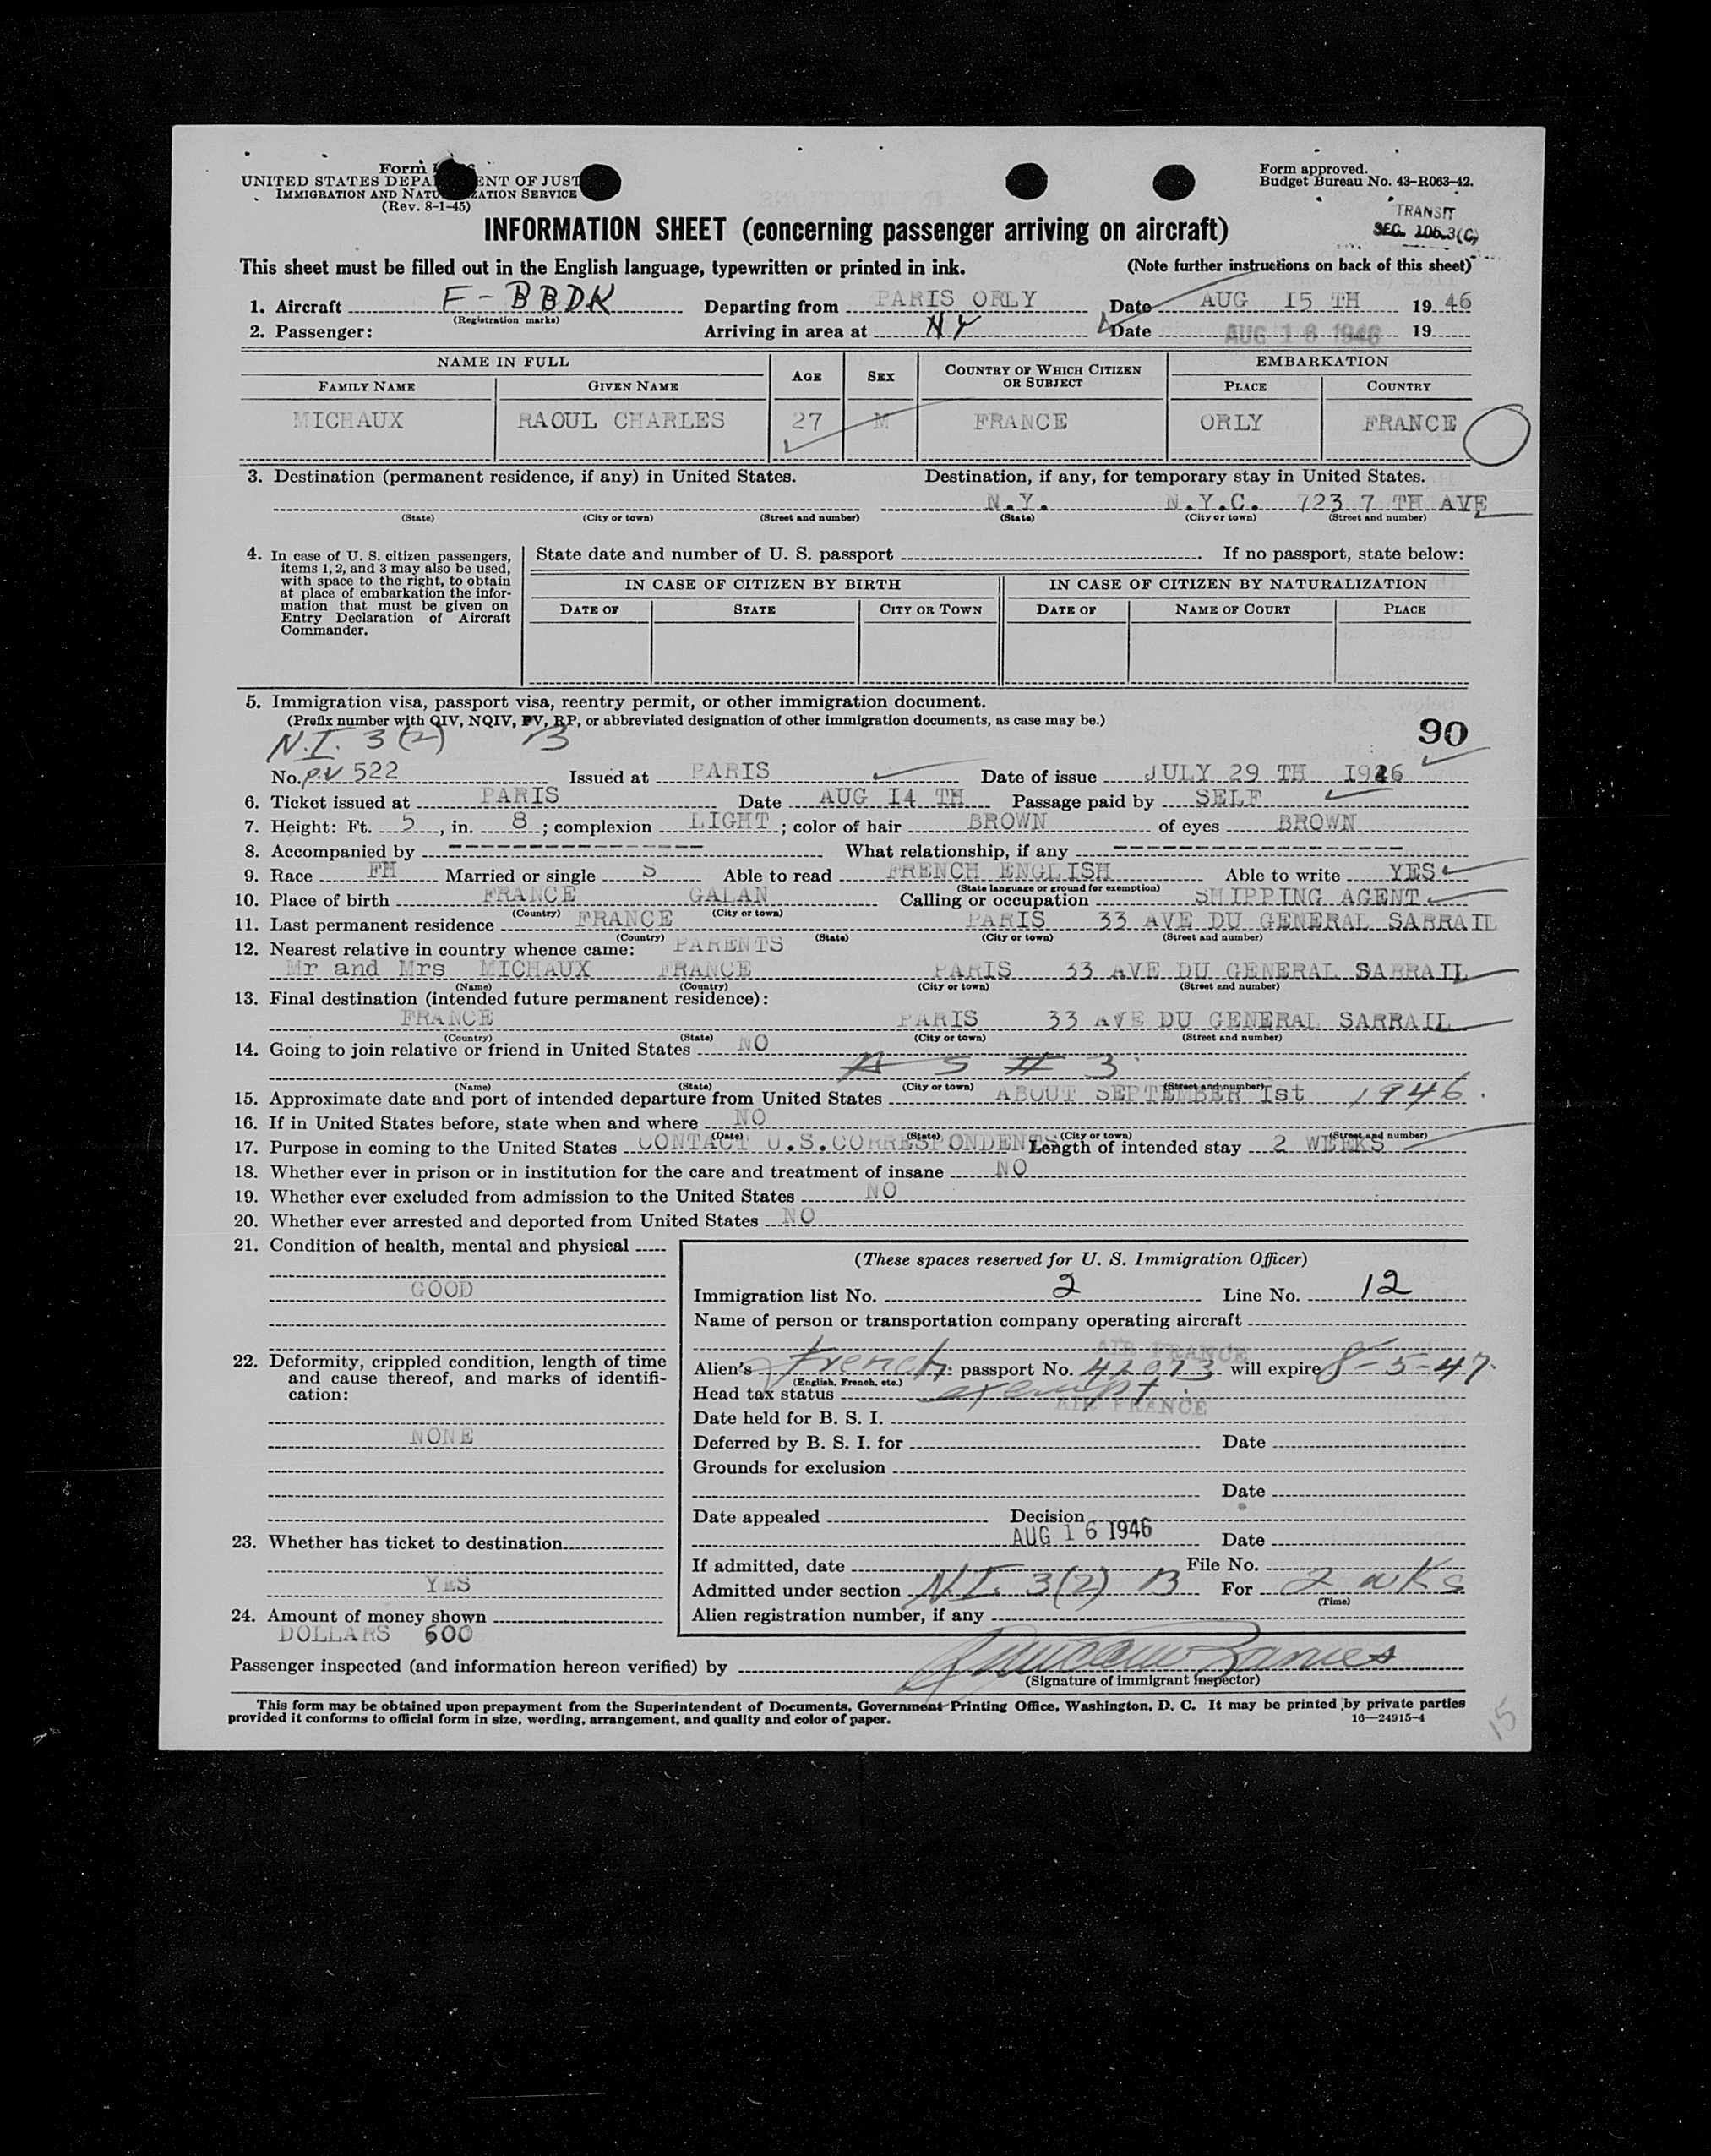 Form
UNITED STATES DEPA ENT OF JUST
IMMIGRATION AND NATU ZATION SERVICE
(Rev. 8-1-45)
Form approved.
Budget Bureau No. 43-R063-42.
TRANSIT
SEC. 106.3(C)
INFORMATION SHEET (concerning passenger arriving on aircraft)
This sheet must be filled out in the English language, typewritten or printed in ink. (Note further instructions on back of this sheet)
1. Aircraft F-BBDK Departing from PARIS ORLY Date AUG 15 TH 1946
(Registration marks)
2. Passenger: Arriving in area at NY Date AUG 16 1946 19
NAME IN FULL AGE SEX COUNTRY OF WHICH CITIZEN OR SUBJECT EMBARKATION
FAMILY NAME GIVEN NAME PLACE COUNTRY
MICHAUX RAOUL CHARLES 27 M FRANCE ORLY FRANCE
3. Destination (permanent residence, if any) in United States. Destination, if any, for temporary stay in United States.
N.Y. N.Y.C. 723 7 TH AVE
(State) (City or town) (Street and number) (State) (City or town) (Street and number)
4. In case of U. S. citizen passengers, items 1, 2, and 3 may also be used, with space to the right, to obtain at place of embarkation the information that must be given on Entry Declaration of Aircraft Commander.
State date and number of U. S. passport If no passport, state below:
IN CASE OF CITIZEN BY BIRTH IN CASE OF CITIZEN BY NATURALIZATION
DATE OF STATE CITY OR TOWN DATE OF NAME OF COURT PLACE
5. Immigration visa, passport visa, reentry permit, or other immigration document.
(Prefix number with QIV, NQIV, PV, RP, or abbreviated designation of other immigration documents, as case may be.)
N.I. 3(2) B 90
No. P.V 522 Issued at PARIS Date of issue JULY 29 TH 1946
6. Ticket issued at PARIS Date AUG 14 TH Passage paid by SELF
7. Height: Ft. 5, in. 8; complexion LIGHT; color of hair BROWN of eyes BROWN
8. Accompanied by ---------------- What relationship, if any ----------------
9. Race FH Married or single S Able to read FRENCH ENGLISH Able to write YES
(State language or ground for exemption)
10. Place of birth FRANCE GALAN Calling or occupation SHIPPING AGENT
(Country) (City or town)
11. Last permanent residence FRANCE PARIS 33 AVE DU GENERAL SARRAIL
(Country) (State) (City or town) (Street and number)
12. Nearest relative in country whence came: PARENTS
Mr and Mrs MICHAUX FRANCE PARIS 33 AVE DU GENERAL SARRAIL
(Name) (Country) (City or town) (Street and number)
13. Final destination (intended future permanent residence):
FRANCE PARIS 33 AVE DU GENERAL SARRAIL
(Country) (State) (City or town) (Street and number)
14. Going to join relative or friend in United States NO
A S # 3
(Name) (State) (City or town) (Street and number)
15. Approximate date and port of intended departure from United States ABOUT SEPTEMBER 1st 1946.
16. If in United States before, state when and where NO
(Date) (State) (City or town) (Street and number)
17. Purpose in coming to the United States CONTACT U.S.CORRESPONDENTS Length of intended stay 2 WEEKS
18. Whether ever in prison or in institution for the care and treatment of insane NO
19. Whether ever excluded from admission to the United States NO
20. Whether ever arrested and deported from United States NO
21. Condition of health, mental and physical
GOOD
22. Deformity, crippled condition, length of time and cause thereof, and marks of identification:
NONE
23. Whether has ticket to destination
YES
24. Amount of money shown
DOLLARS 600
(These spaces reserved for U. S. Immigration Officer)
Immigration list No. 2 Line No. 12
Name of person or transportation company operating aircraft
AIR FRANCE
Alien's French passport No. 42973 will expire 8-5-47.
(English, French, etc.)
Head tax status exempt.
AIR FRANCE
Date held for B. S. I.
Deferred by B. S. I. for Date
Grounds for exclusion
Date
Date appealed Decision
AUG 16 1946 Date
If admitted, date File No.
Admitted under section N.I. 3(2) B For 2 wks
(Time)
Alien registration number, if any
Passenger inspected (and information hereon verified) by
(Signature of immigrant inspector)
This form may be obtained upon prepayment from the Superintendent of Documents, Government Printing Office, Washington, D. C. It may be printed by private parties
provided it conforms to official form in size, wording, arrangement, and quality and color of paper. 16—24915-4
15